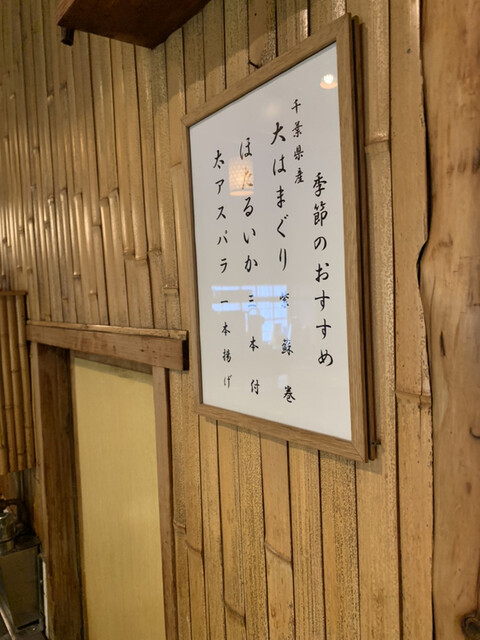 季節のおすすめ
千葉県産
大はまぐり 紫蘇巻
ほたるいか 三本付
太アスパラ 一本揚げ